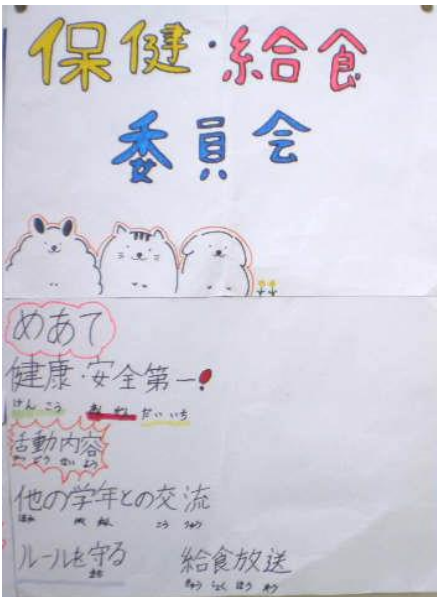 保健・給食
委員会
めあて
健康・安全第一!
けんこう あんぜん だいいち
活動内容
かつどうないよう
他の学年との交流
ほか がくねん こうりゅう
ルールを守る 給食放送
まも きゅうしょくほうそう